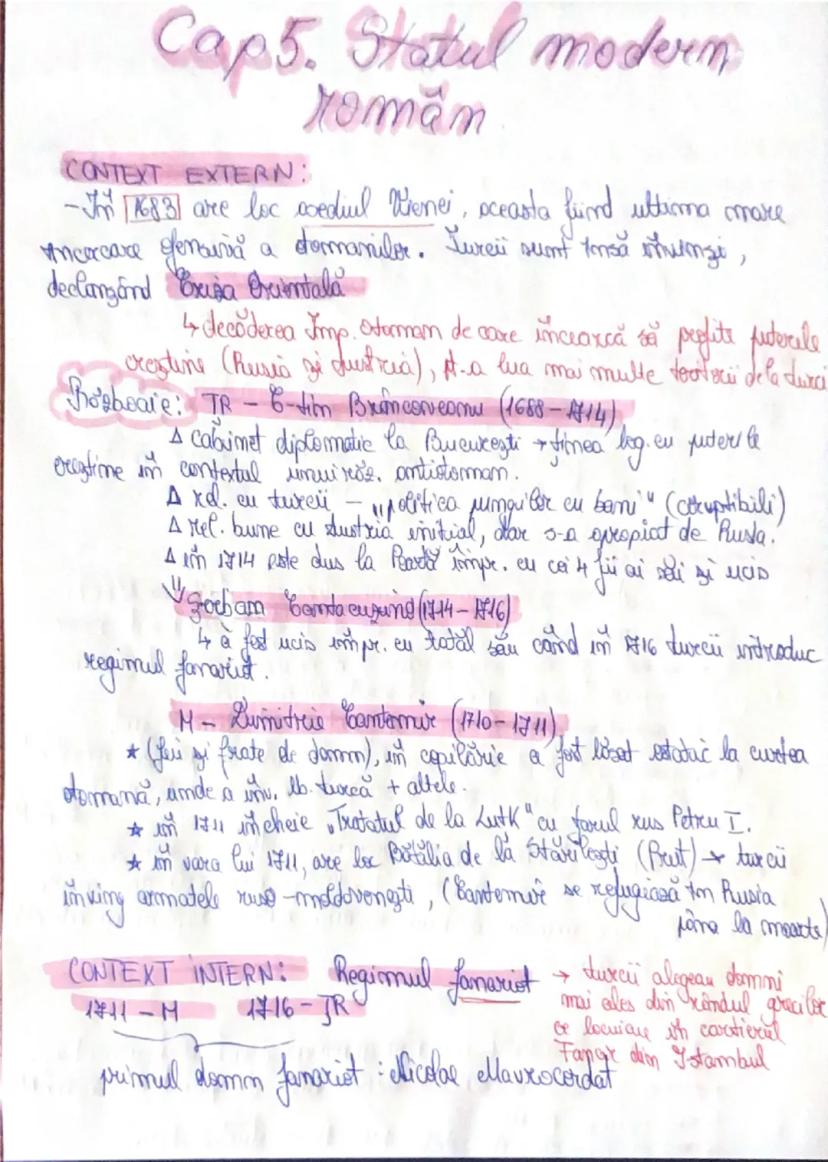 Cap 5. Statul modern
român
CONTEXT EXTERN:
- În 1683 are loc asediul Vienei, aceasta fiind ultima mare
încercare ofensivă a otomanilor. Turcii sunt însă învinși,
declanșând Criza Orientală
↳ decăderea Imp. Otoman de care încearcă să profite puterile
creștine (Rusia și Austria), pt-a lua mai multe teritorii de la turci
Războaie: ȚR - C-tin Brâncoveanu (1688-1714)
Δ cabinet diplomatic la București → ținea leg. cu puterile
creștine în contextul unui răz. antiotoman.
Δ rel. cu turcii - „politica pungilor cu bani" (coruptibili)
Δ rel. bune cu Austria inițial, dar s-a apropiat de Rusia.
Δ în 1714 este dus la Poartă împr. cu cei 4 fii ai săi și ucis
⇓ Ștefan Cantacuzino (1714-1716)
↳ a fost ucis împr. cu tatăl său când în 1716 turcii introduc
regimul fanariot.
M - Dimitrie Cantemir (1710-1711)
★ (fiu și frate de domn), în copilărie a fost lăsat ostatic la curtea
otomană, unde a înv. lb. turcă + altele.
★ în 1711 încheie „Tratatul de la Lutk" cu țarul rus Petru I.
★ în vara lui 1711, are loc Bătălia de la Stănilești (Prut) → turcii
înving armatele ruso-moldovenești, (Cantemir se refugiază în Rusia
până la moarte)
CONTEXT INTERN: Regimul fanariot → turcii alegeau domni
1711 - M 1716 - ȚR mai ales din rândul grecilor
ce locuiau în cartierul
Fanar din Istambul
primul domn fanariot: Nicolae Mavrocordat